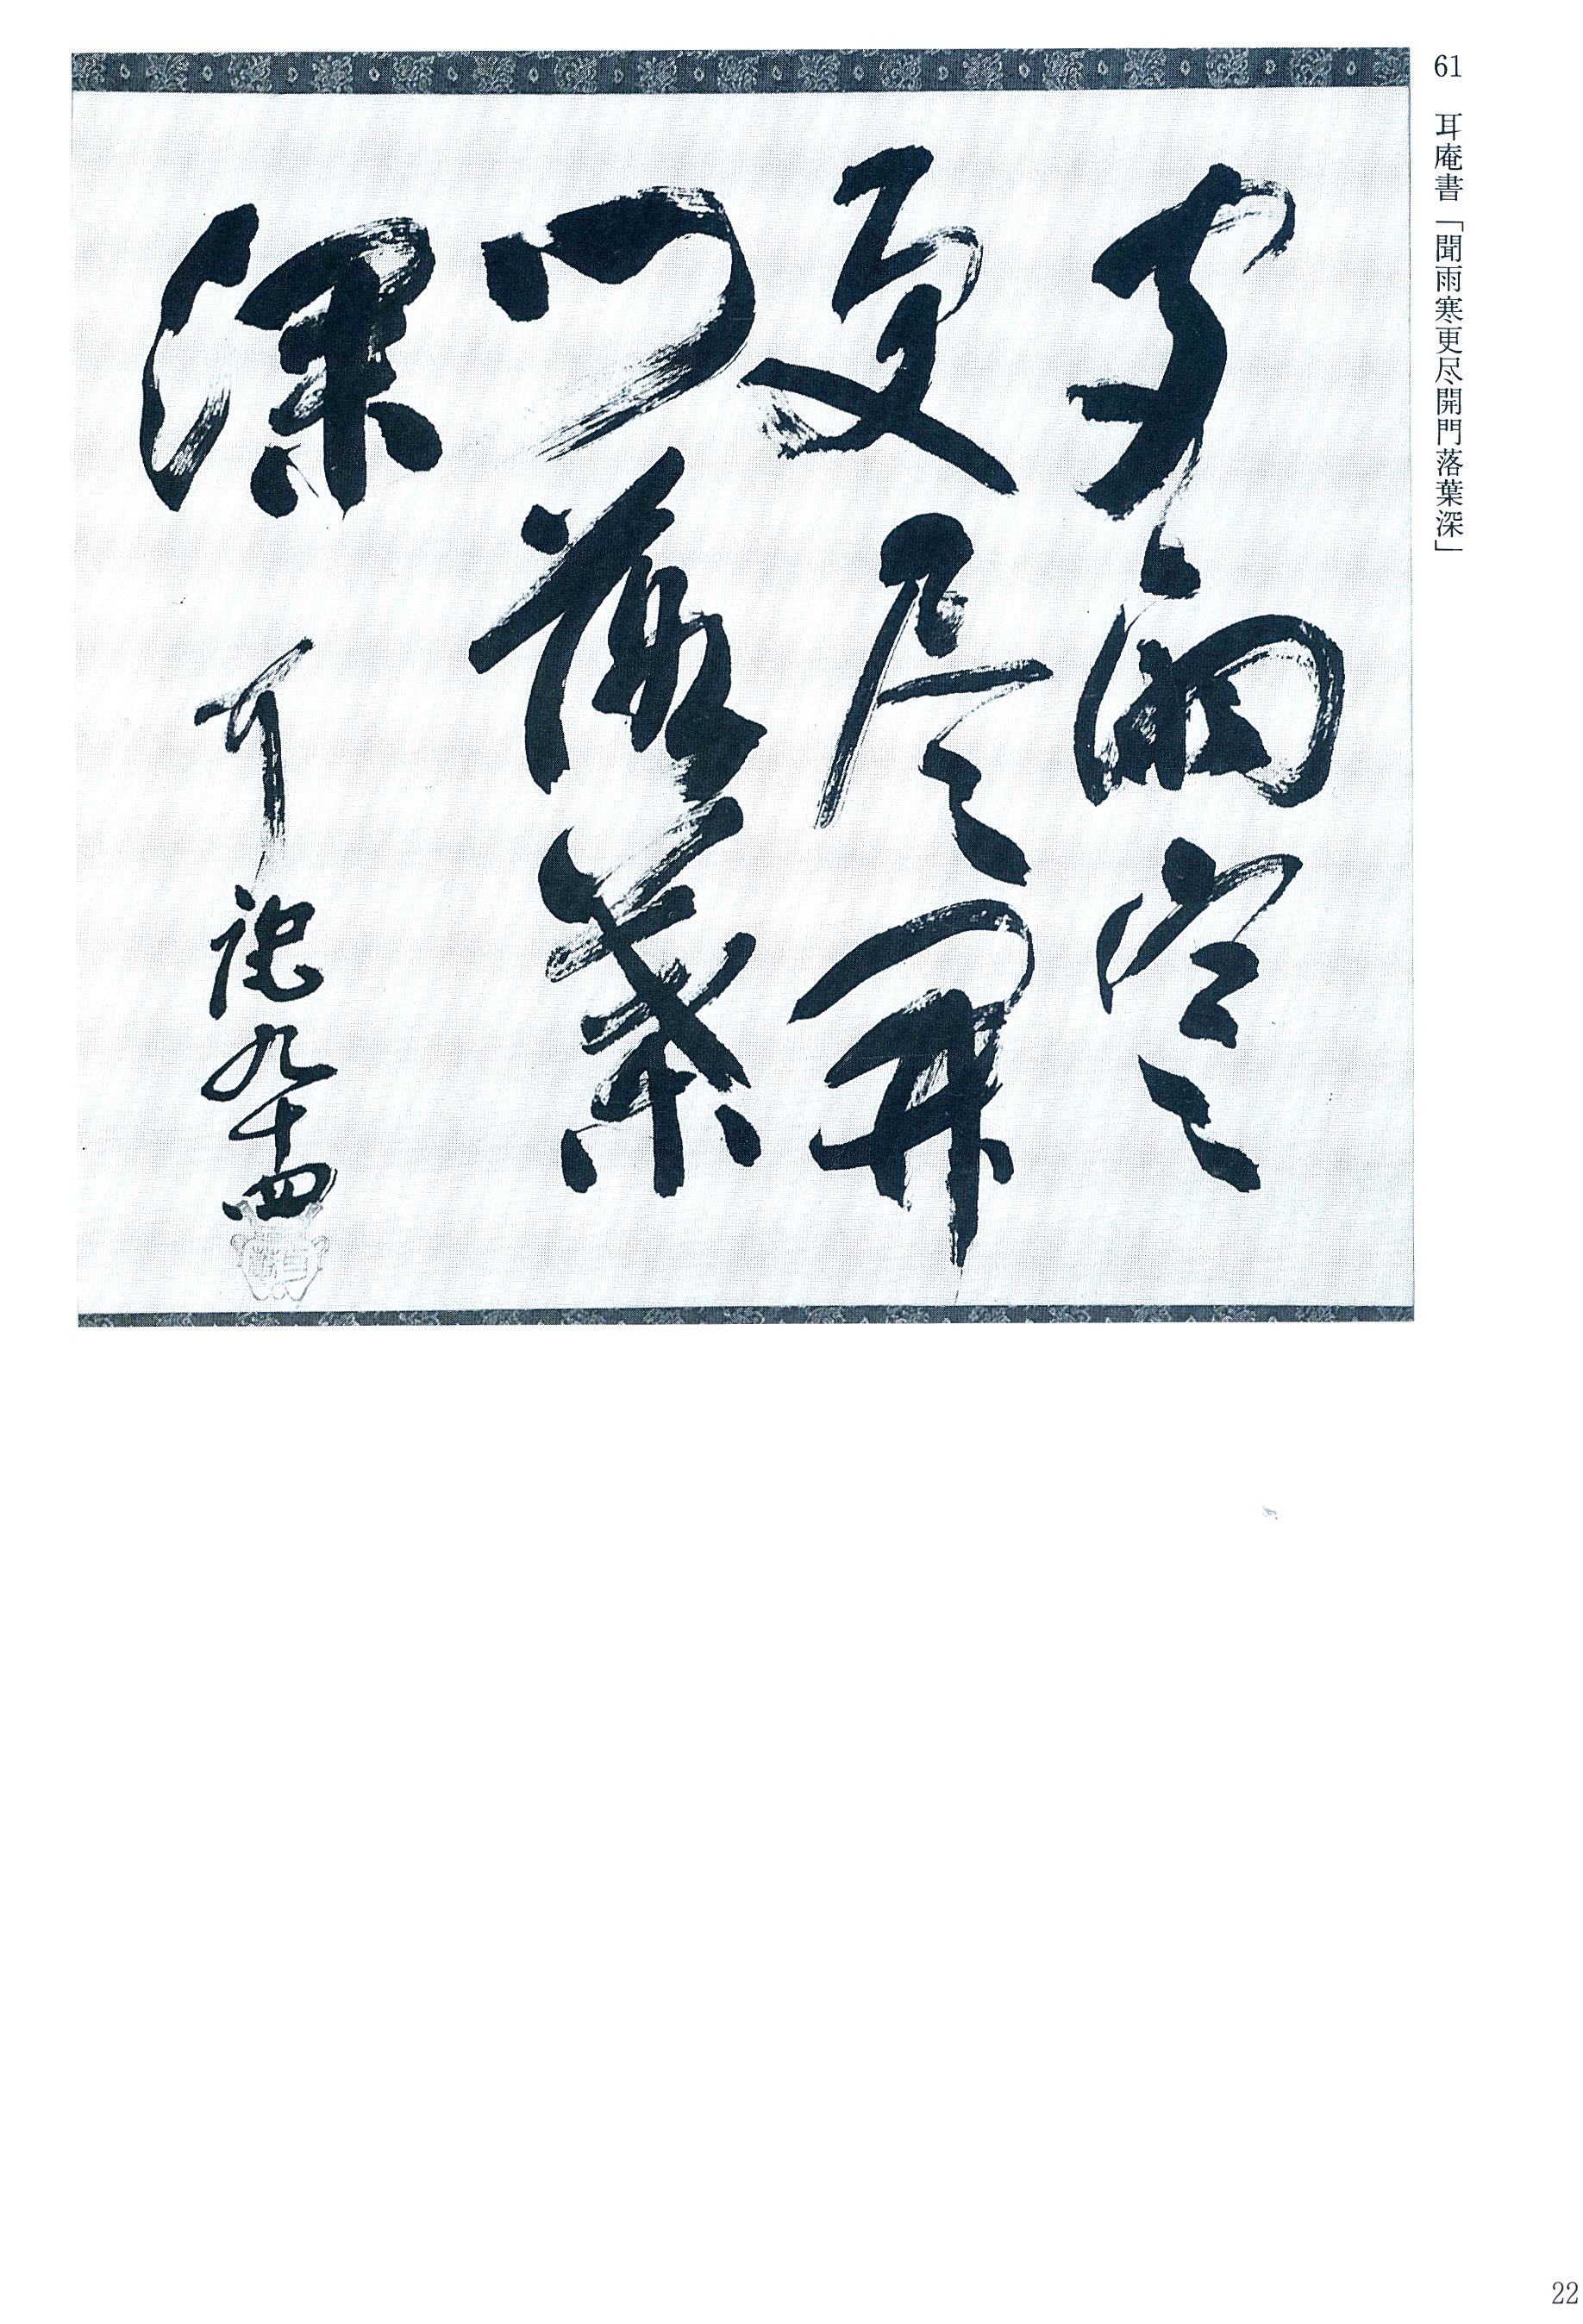 61 耳庵書「聞雨寒更尽開門落葉深」
聞雨寒
更尽開
門落葉
深
九十四
22